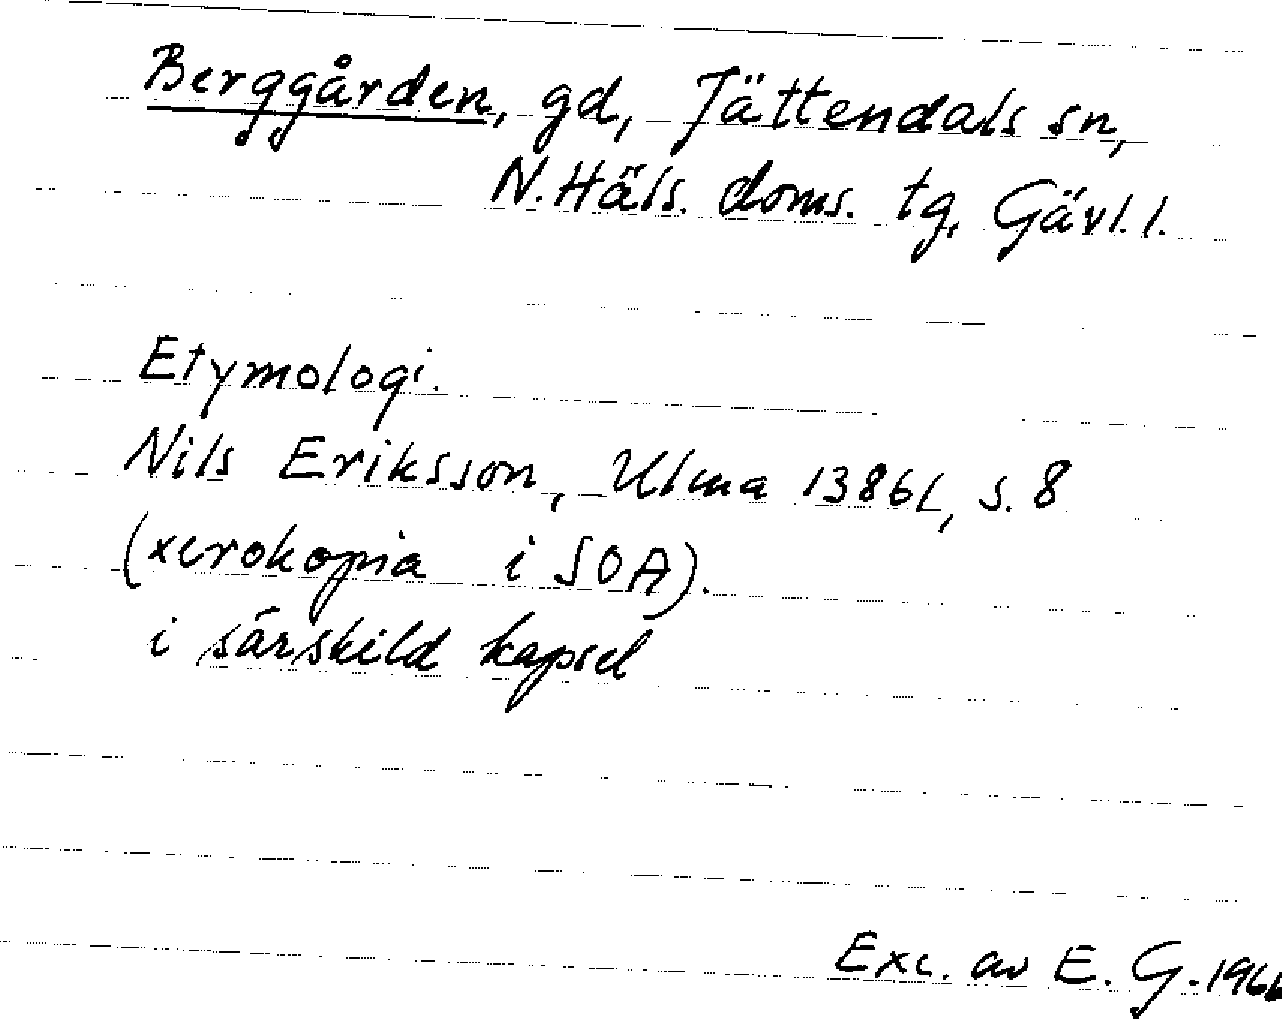 Berggården, gd, Jättendals sn,
N. Häls. doms. tg, Gävl. l.
Etymologi.
Nils Eriksson, Ulma 13861, s. 8
(xerokopia i SOA).
i särskild kapsel
Exc. av E. G. 1966